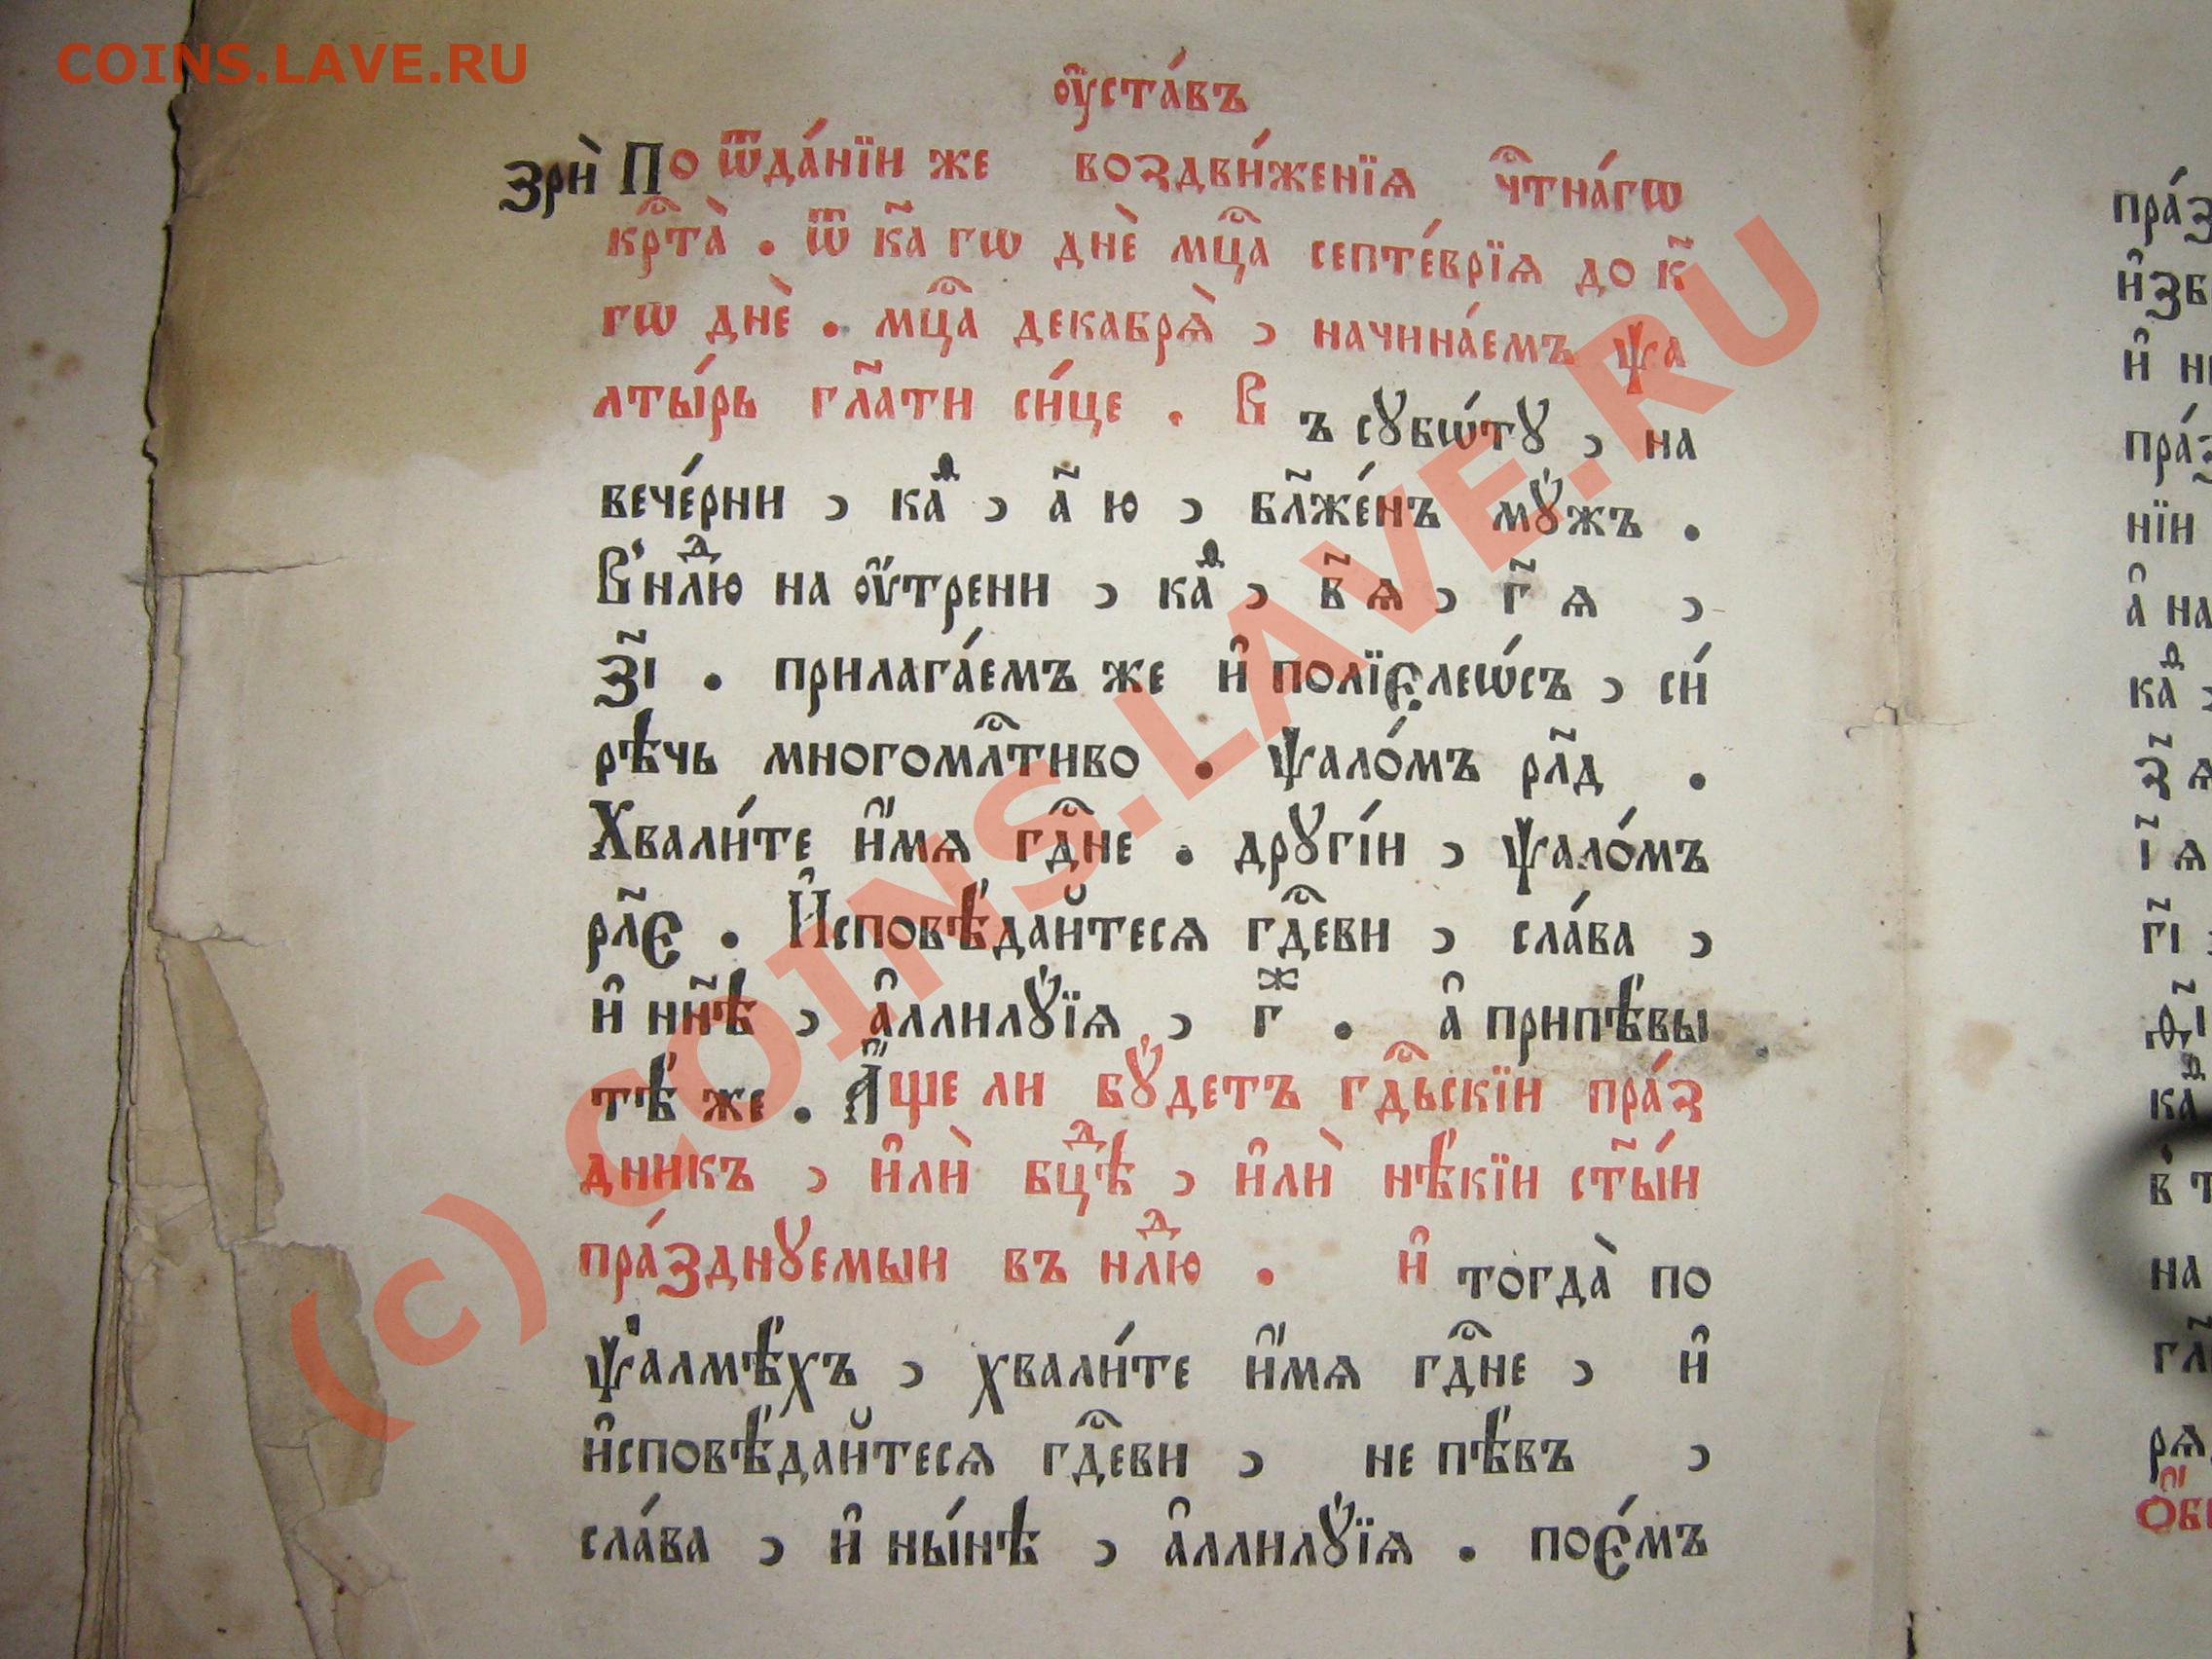 COINS.LAVE.RU
ᲂу҆ста́въ
зрѝ По ѿда́нїи же воздви́женїѧ чⷭ҇тна́гѡ
крⷭ҇та̀ . ѿ к҃а гѡ днѐ мцⷭ҇а септе́врїѧ до к҃
гѡ днѐ . мцⷭ҇а декабрѧ̀ , начина́емъ ѱа
лты́рь гл҃ати си́це . В ъ сꙋбѡ́тꙋ , на
вече́рни , каѳⷨ , а҃ ю , бл҃же́нъ мꙋ́жъ .
В' нлⷣю на ᲂу҆́трени , каѳⷨ , в҃ ѧ , г҃ ѧ ,
з҃і . прилага́емъ же и҆ полїєлеѡ́съ , си́
рѣчь многомлⷭ҇тиво . ѱало́мъ рл҃д .
Хвали́те и҆́мѧ гдⷭ҇не . дрꙋгі́и , ѱало́мъ
рл҃є . И҆сповѣ́дайтесѧ гдⷭ҇еви , сла́ва ,
и҆ нн҃ѣ , а҆ллилꙋ́їѧ , гⷤ . а҆ припѣ́вы
тѣ́ же . А҆́ще ли бꙋ́детъ гдⷭ҇ьскїи пра́з
дникъ , и҆лѝ бцⷣѣ , и҆лѝ нѣ́кїи ст҃ы́и
пра́зднꙋемыи въ нлⷣю . и҆ тогда̀ по
ѱалмѣ́хъ , хвали́те и҆́мѧ гдⷭ҇не , и҆
и҆сповѣ́дайтесѧ гдⷭ҇еви , не пѣ́въ ,
сла́ва , и҆ ны́нѣ , а҆ллилꙋ́їѧ . поє́мъ
(c) COINS.LAVE.RU